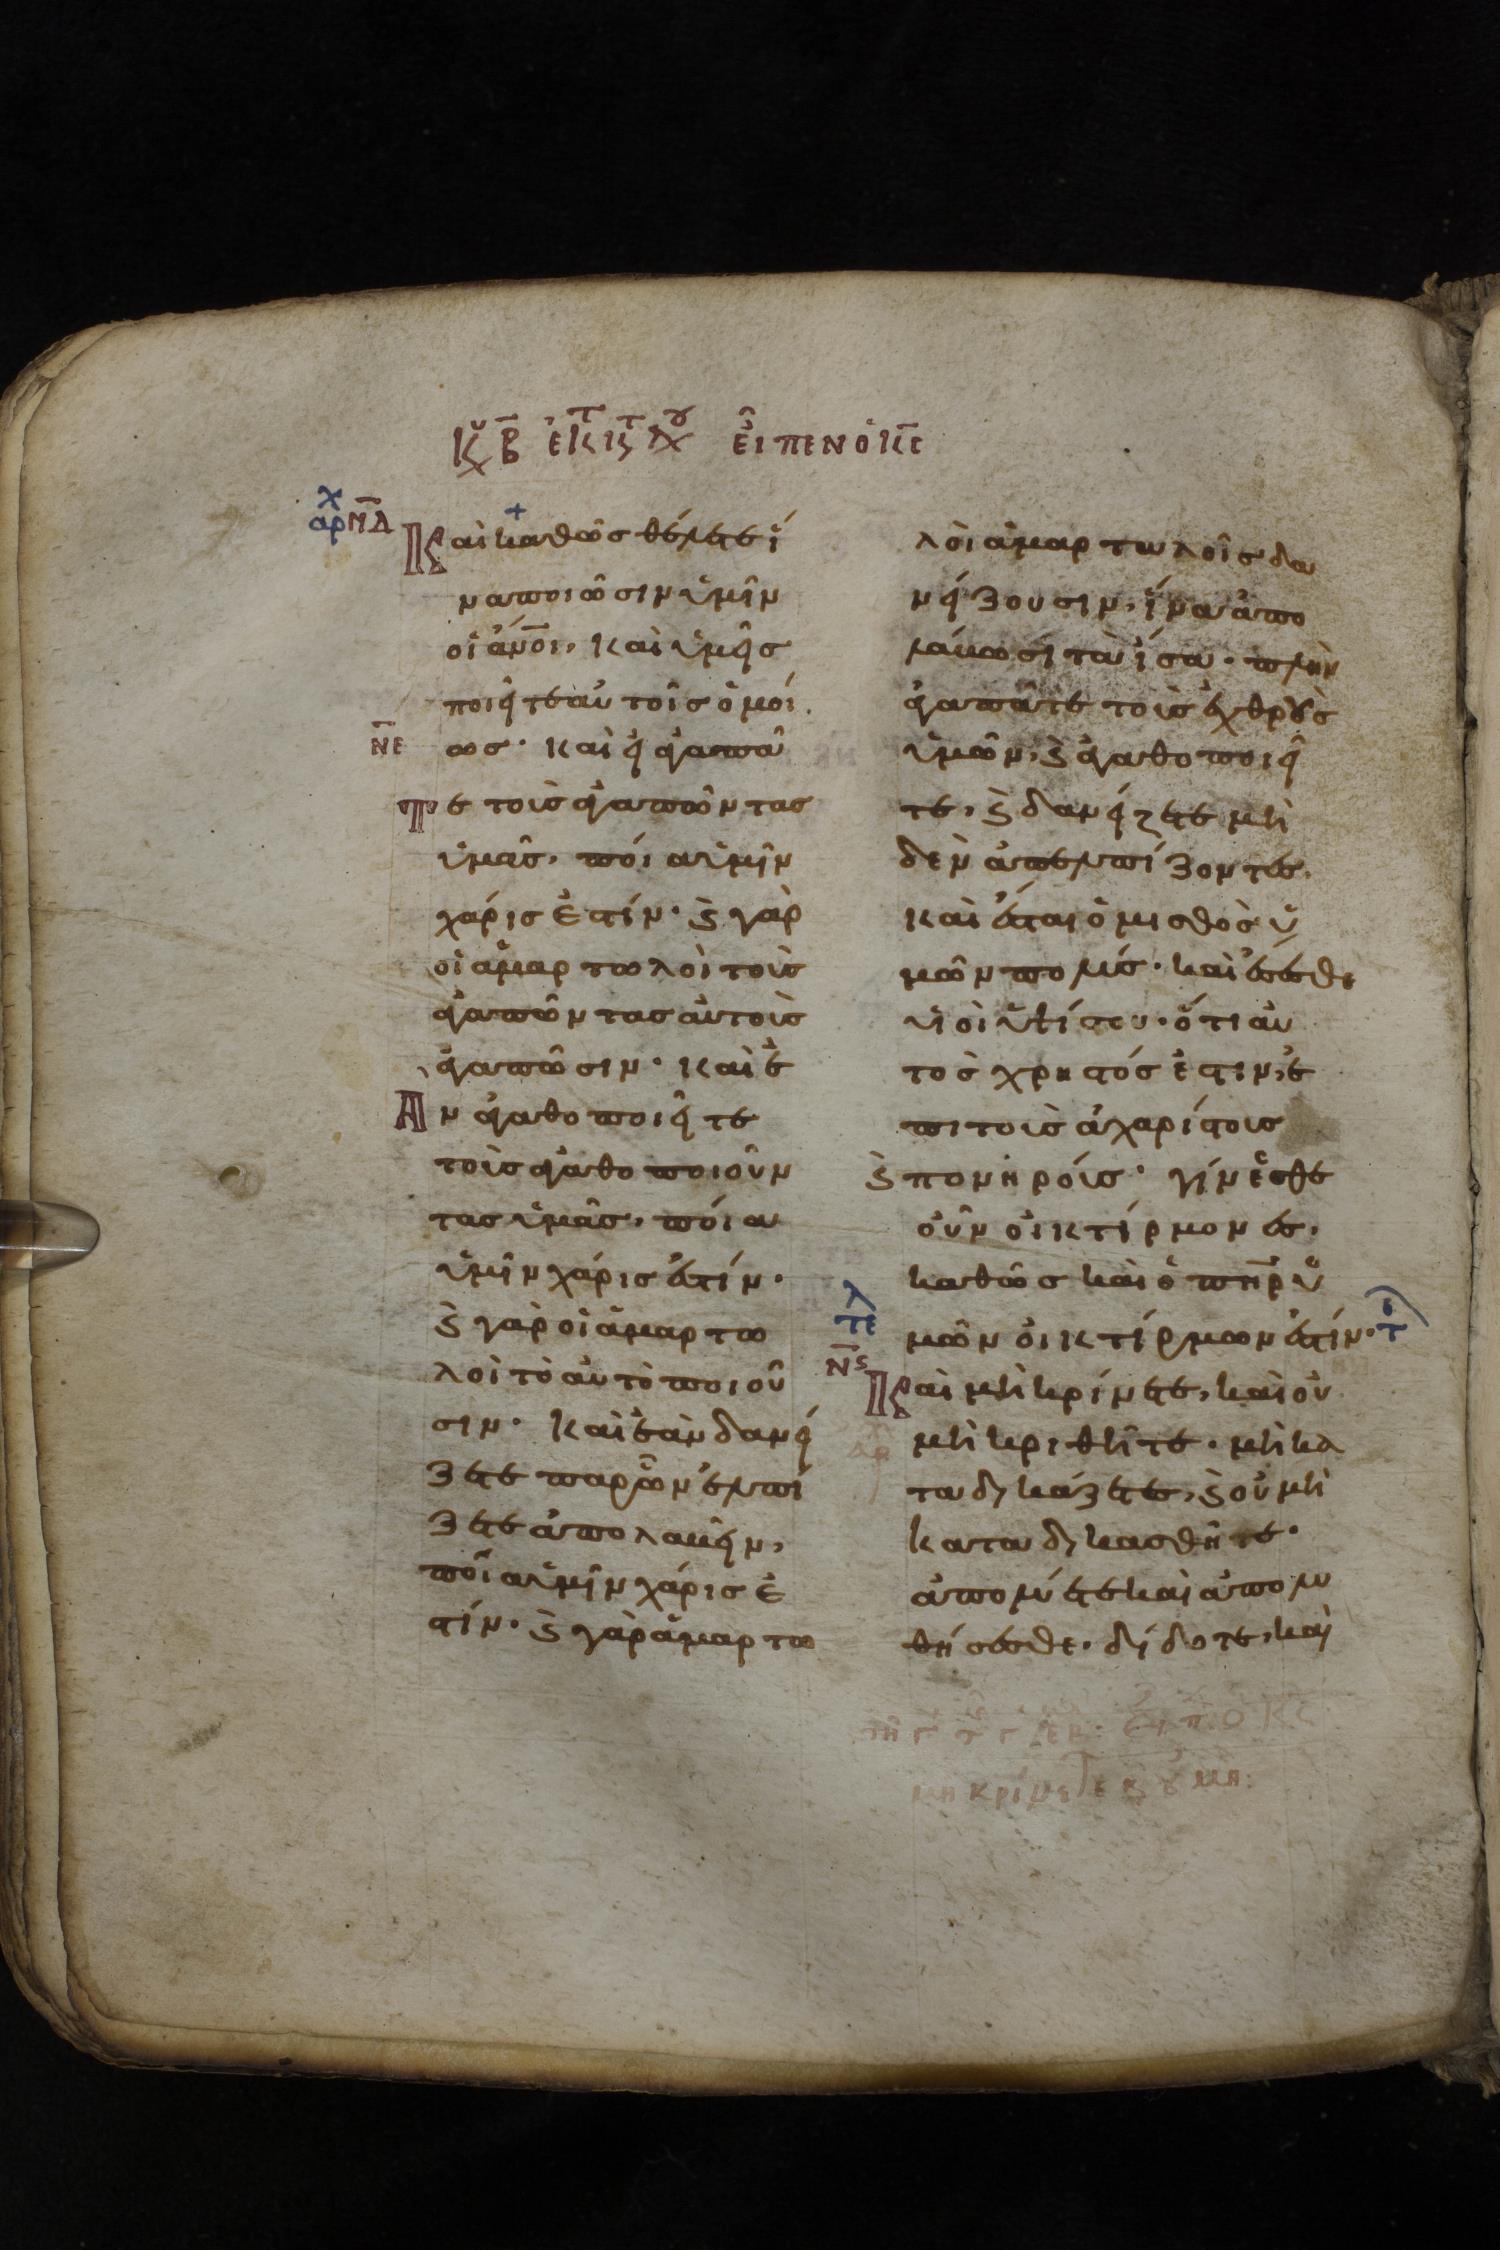 Κυ Β ἐκ τ κτ λου εἶπεν ὁ κς
αρχ ΝΔ
Καὶ καθὼς θέλετε ἵ
να ποιῶσιν ὑμῖν
οἱ ἄνοι, καὶ ὑμεῖς
ποιεῖτε αὐτοῖς ὁμοί
ΝΕ
ως· καὶ εἰ ἀγαπᾶ
τε τοὺς ἀγαπῶντας
ὑμᾶς, ποία ὑμῖν
χάρις ἐστίν· ϗ γὰρ
οἱ ἁμαρτωλοὶ τοὺς
ἀγαπῶντας αὐτοὺς
ἀγαπῶσιν· καὶ ἐ
ὰν ἀγαθοποιεῖτε
τοὺς ἀγαθοποιοῦν
τας ὑμᾶς, ποία
ὑμῖν χάρις ἐστίν·
ϗ γὰρ οἱ ἁμαρτω
λοὶ τὸ αὐτὸ ποιοῦ
σιν· καὶ ἐὰν δανεί
ζετε παρ ὧν ἐλπί
ζετε ἀπολαβεῖν,
ποία ὑμῖν χάρις ἐ
στίν· ϗ γὰρ ἁμαρτω
λοὶ ἁμαρτωλοῖς δα
νείζουσιν, ἵνα ἀπο
λάβωσι τὰ ἴσα· πλὴν
ἀγαπᾶτε τοὺς ἐχθροὺς
ὑμῶν, ϗ ἀγαθοποιεῖ
τε, ϗ δανείζετε μη
δὲν ἀπελπίζοντες.
καὶ ἔσται ὁ μισθὸς ὑ
μῶν πολύς· καὶ ἔσεσθε
υἱοὶ ὑψίστου· ὅτι αὐ
τὸς χρηστός ἐστιν, ἐ
πὶ τοὺς ἀχαρίστους
ϗ πονηρούς· γίνεσθε
οὖν οἰκτίρμονες,
καθὼς καὶ ὁ πηρ ὑ
τελ
μῶν οἰκτίρμων ἐστίν·
Νς
Καὶ μὴ κρίνετε, καὶ οὐ
αρχ
μὴ κριθῆτε· μὴ κα
ταδικάζετε, ϗ οὐ μὴ
καταδικασθῆτε·
ἀπολύετε καὶ ἀπολυ
θήσεσθε· δίδοτε, καὶ
εἶπ ὁ κς
μὴ κρίνετε κ οὐ μη: